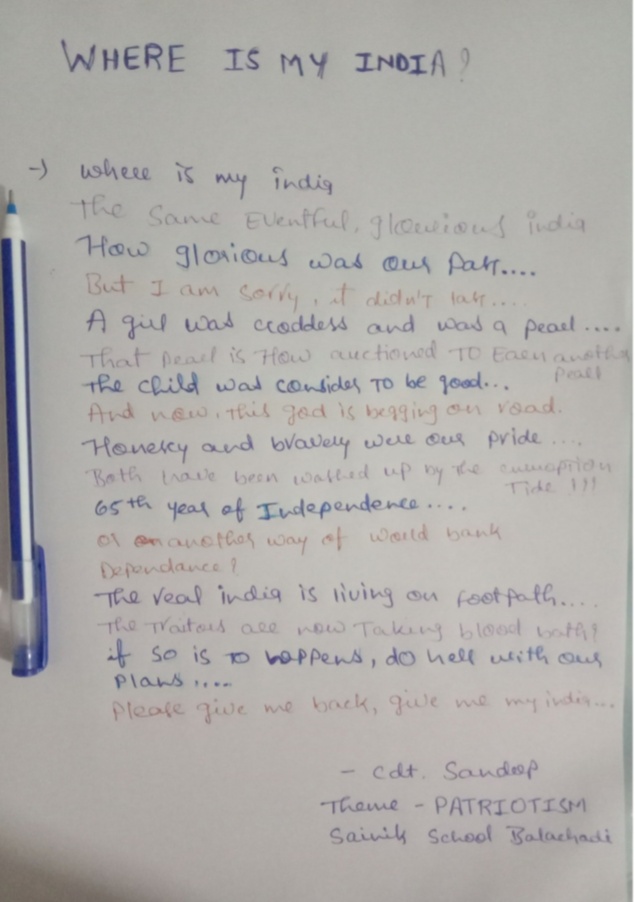 WHERE IS MY INDIA?
→ where is my india
The Same Eventful, glowious india
How glorious was our Past....
But I am sorry, it didn't last....
A girl was Goddess and was a pearl ....
That pearl is How auctioned TO Each another
Pearl
the child was consider TO be good...
And now, this god is begging on road.
Honesty and bravery were our pride ....
Both have been washed up by the
Tide !!!
65th year of Independence....
or on another way of world bank
Dependance?
The real india is living on footpath....
The Traitors are now Taking blood bath?
if so is to happens, do hell with our
plans ....
Please give me back, give me my india...
- Cdt. Sandeep
Theme - PATRIOTISM
Sainik School Balachadi